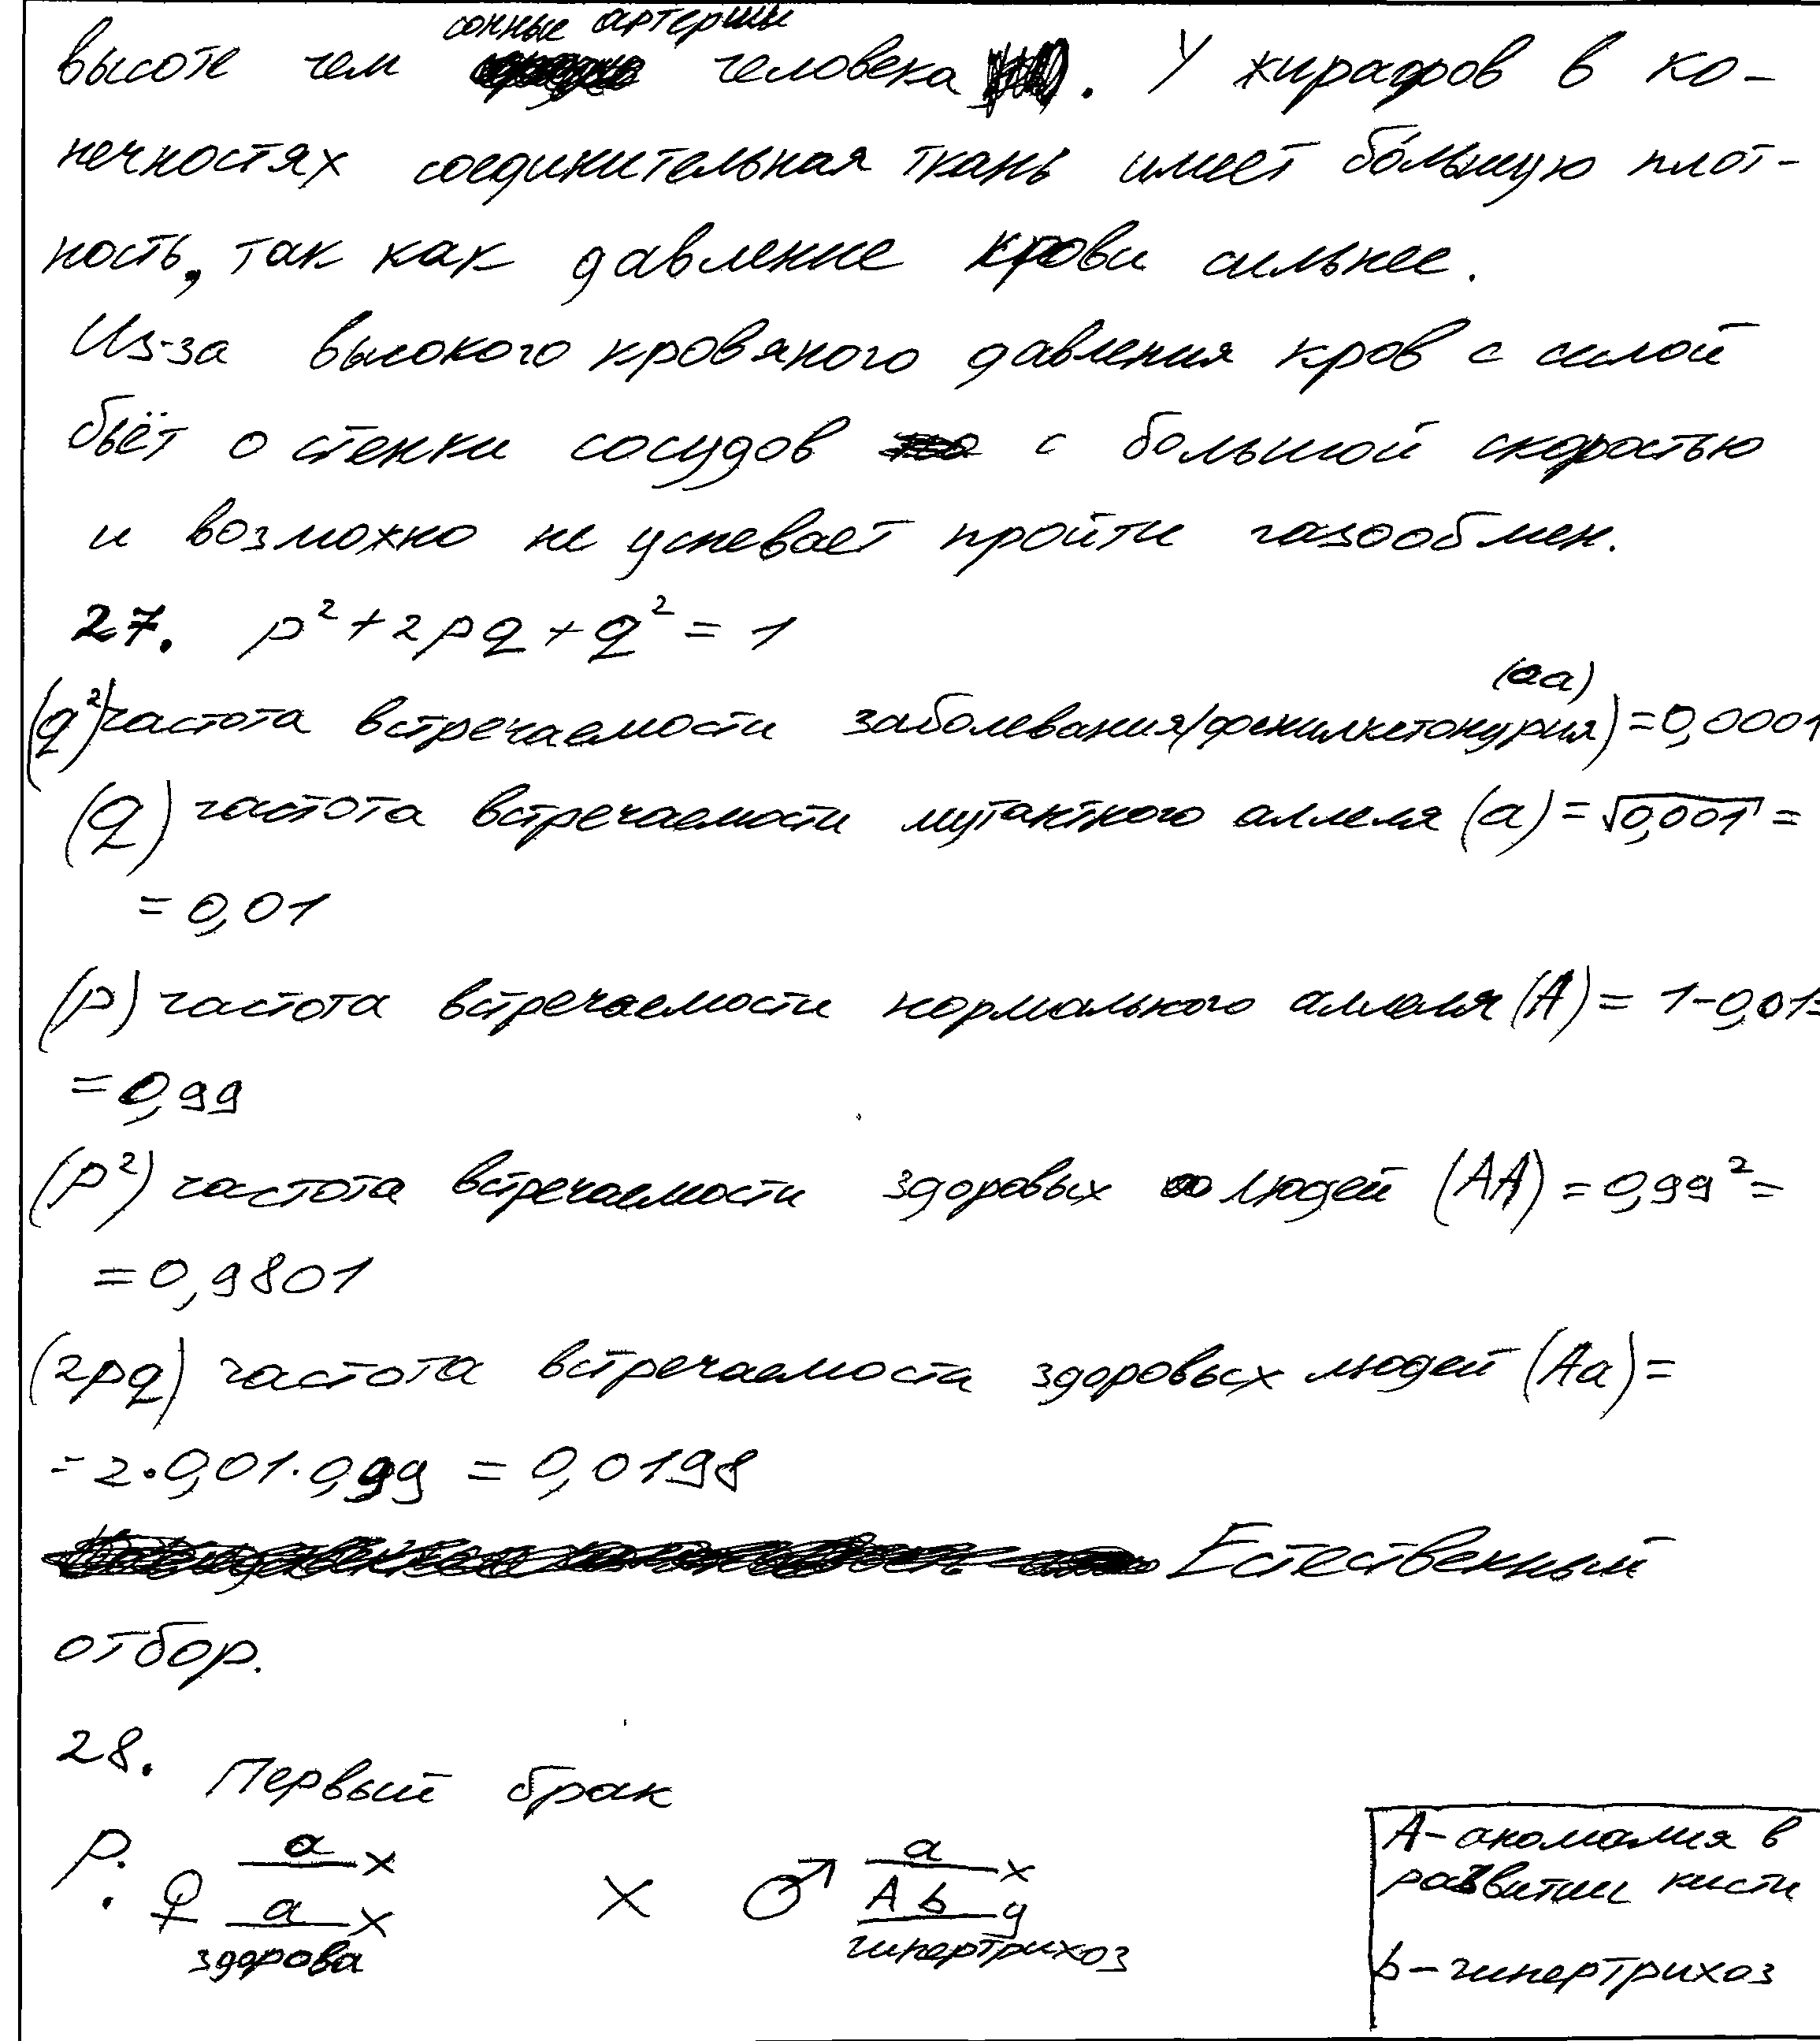 сонные артерии
высоте чем человека. У жирафов в ко-
нечностях соединительная ткань имеет бо́льшую плот-
ность, так как давление крови сильнее.
Из-за высокого кровяного давления кров с силой
бьёт о стенки сосудов с большой скоростью
и возможно не успевает пройти газообмен.
27. p² + 2pq + q² = 1
(aa)
(q²) частота встречаемости заболевания (фенилкетонурия) = 0,0001
(q) частота встречаемости мутантного аллеля (a) = √0,001 =
= 0,01
(p) частота встречаемости нормального аллеля (A) = 1-0,01=
= 0,99
(p²) частота встречаемости здоровых людей (AA) = 0,99² =
= 0,9801
(2pq) частота встречаемости здоровых людей (Aa) =
= 2·0,01·0,99 = 0,0198
Естественный
отбор.
28. Первый брак
P: ♀ a x / a x × ♂ a x / A b y
здорова гипертрихоз
A - аномалия в
развитии кисти
b - гипертрихоз